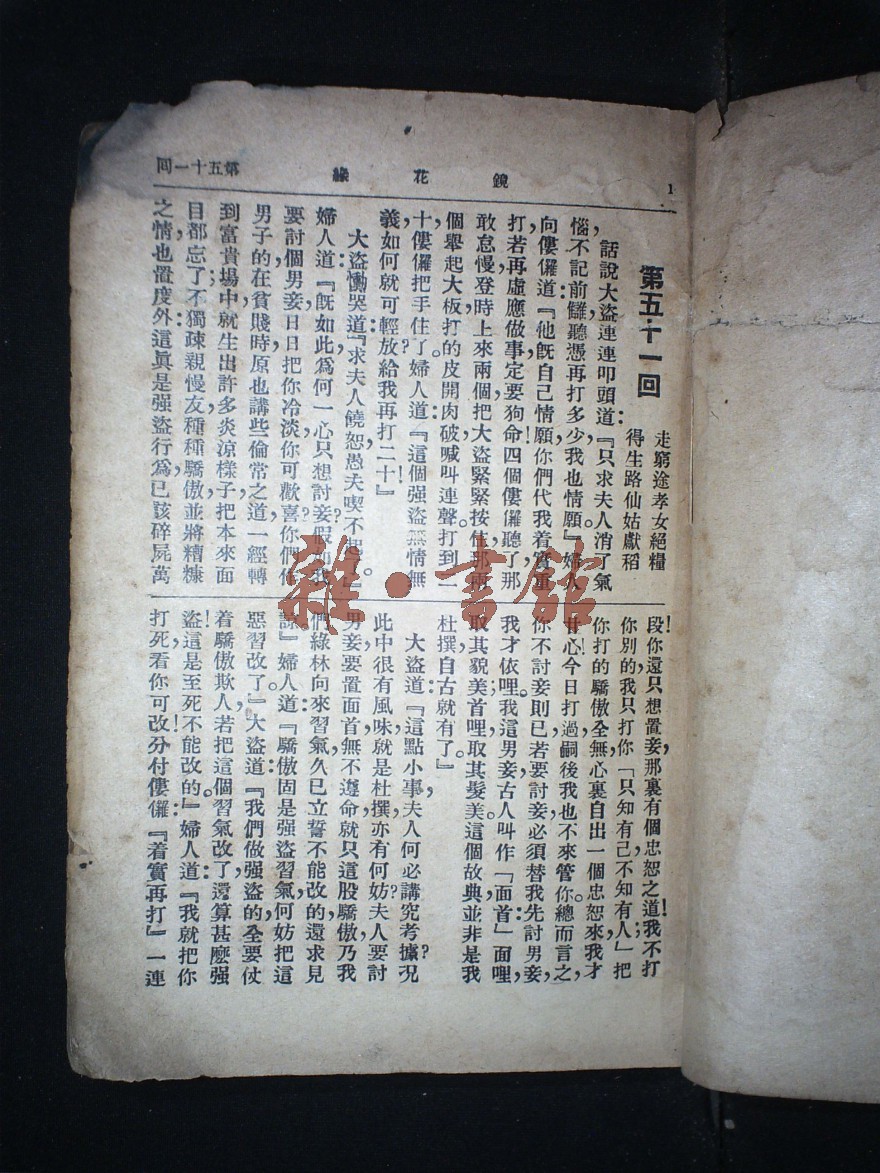 1
鏡花緣
第五十一回
第五十一回
走窮途孝女絕糧
得生路仙姑獻稻
話說大盜連連叩頭道：『只求夫人消了氣
惱，不記前讎，聽憑再打多少，我也情願。』婦人
向僂儸道：『他既自己情願，你們代我着實重
打，若再虛應做事，定要狗命！』四個僂儸聽了，那
敢怠慢，登時上來兩個，把大盜緊緊按住，那兩
個舉起大板，打的皮開肉破，喊叫連聲。打到二
十，僂儸把手住了。婦人道：『這個强盜無情無
義，如何就可輕放？給我再打二十！』
大盜慟哭道：『求夫人饒恕，愚夫喫不起了。』
婦人道：『既如此，爲何一心只想討妾？假如我
要討個男妾，日日把你冷淡，你可歡喜？你們作
男子的，在貧賤時原也講些倫常之道，一經轉
到富貴場中，就生出許多炎涼樣子，把本來面
目都忘了；不獨疎親慢友，種種驕傲，並將糟糠
之情也置度外：這眞是强盜行爲，已該碎屍萬
段！你還只想置妾，那裏有個忠恕之道！我不打
你別的，我只打你「只知有己，不知有人」；把
你打的驕傲全無，心裏自出一個忠恕來，我才
甘心！今日打過，嗣後我也不來管你。總而言之，
你不討妾則已，若要討妾，必須替我先討男妾，
我才依哩。我這男妾，古人叫作「面首」：面哩，
取其貌美；首哩，取其髮美。這個故典，並非是我
杜撰，自古就有了。』
大盜道：『這點小事，夫人何必講究考據？況
此中很有風味，就是杜撰，亦有何妨？夫人要討
男妾，要置面首，無不遵命；就只這股驕傲，乃我
們綠林向來習氣，久已立誓不能改的，還求見
諒。』婦人道：『驕傲固是强盜習氣，何妨把這
惡習改了？』大盜道：『我們做强盜的，全要仗
着驕傲欺人，若把這個習氣改了，還算甚麽强
盜！這是至死不能改的。』婦人道：『我就把你
打死，看你可改！』分付僂儸：『着實再打！』一連
雜·書館